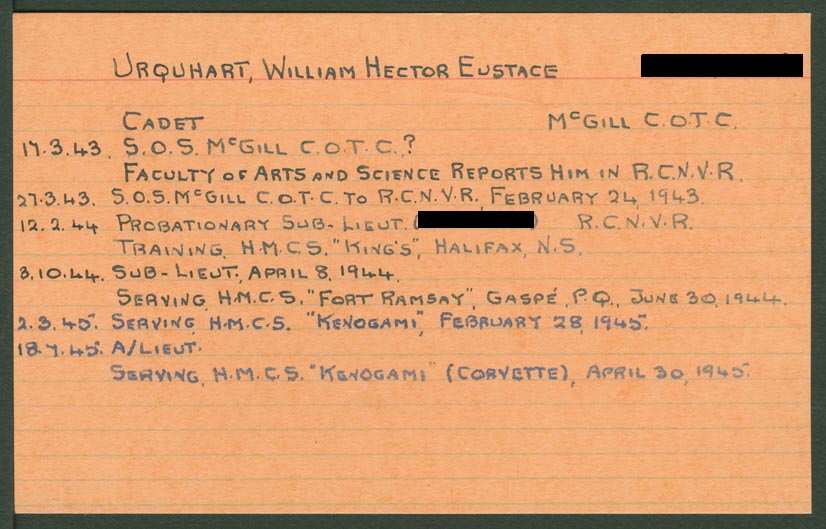 URQUHART, WILLIAM HECTOR EUSTACE
CADET McGILL C.O.T.C.
17.3.43. S.O.S. McGILL C.O.T.C.?
FACULTY OF ARTS AND SCIENCE REPORTS HIM IN R.C.N.V.R.
27.3.43. S.O.S. McGILL C.O.T.C. TO R.C.N.V.R., FEBRUARY 24, 1943.
12.2.44 PROBATIONARY SUB-LIEUT. ( ) R.C.N.V.R.
TRAINING, H.M.C.S. "KING'S", HALIFAX, N.S.
3.10.44. SUB-LIEUT., APRIL 8, 1944.
SERVING, H.M.C.S. "FORT RAMSAY", GASPÉ, P.Q., JUNE 30, 1944.
2.3.45. SERVING, H.M.C.S. "KENOGAMI", FEBRUARY 28, 1945.
18.7.45. A/LIEUT.
SERVING, H.M.C.S. "KENOGAMI" (CORVETTE), APRIL 30, 1945.